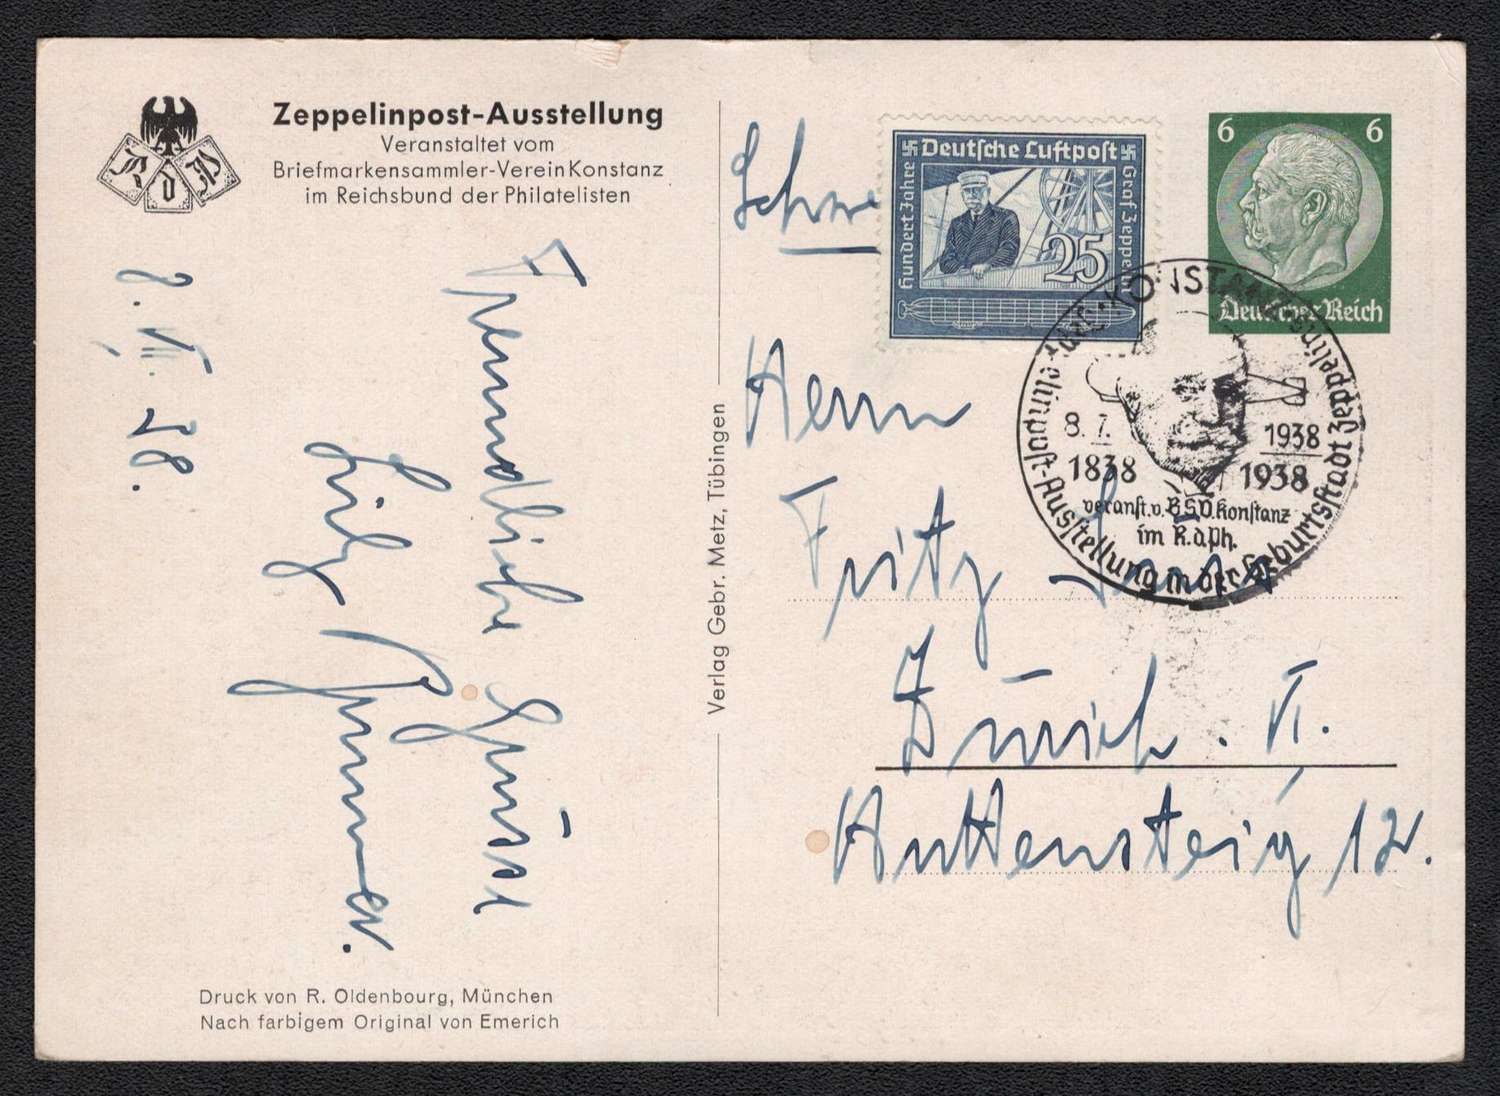 RdP
Zeppelinpost-Ausstellung
Veranstaltet vom
Briefmarkensammler-Verein Konstanz
im Reichsbund der Philatelisten
8. VII. 38.
Freundliche Grüsse
Druck von R. Oldenbourg, München
Nach farbigem Original von Emerich
Verlag Gebr. Metz, Tübingen
Deutsche Luftpost
Hundert Jahre
Graf Zeppelin
25
6 6
Deutsches Reich
KONSTANZ
Zeppelinpost-Ausstellung in der Geburtsstadt Zeppelins
8. 7. 1938
1838 1938
veranst. v. B.S.V. Konstanz
im R.d.Ph.
Herrn
Fritz
Zürich. II.
Huttensteig 12.